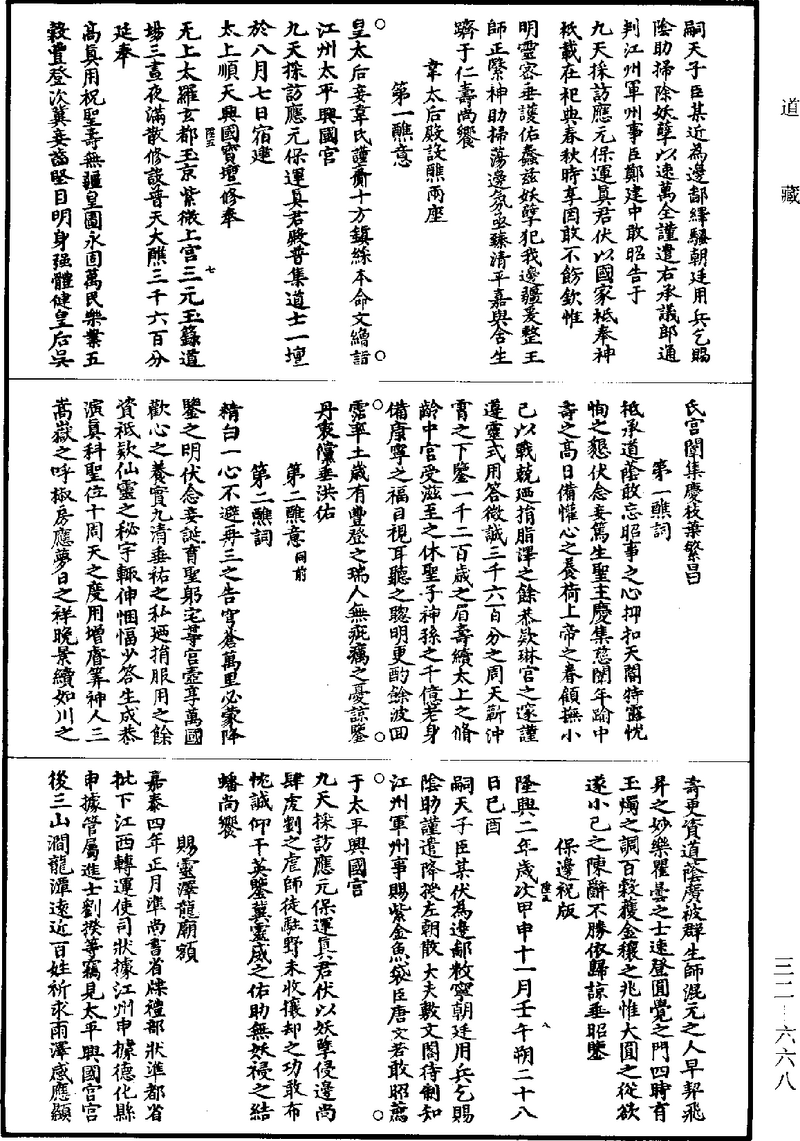 道藏
嗣天子臣某近為邊鄙繹騷朝廷用兵乞賜
陰助掃除妖孽以速萬全謹遣右承議郎通
判江州軍州事臣鄭建中敢昭告于
九天採訪應元保運真君伏以國家祗奉神
祇載在祀典春秋時享罔敢不飭欽惟
明靈密垂護佑蠢茲妖孽犯我邊疆爰整王
師正繄神助掃蕩邊氛亟臻清平嘉與含生
躋于仁壽尚饗
韋太后殿設醮兩座
第一醮意
皇太后妾韋氏謹齎十方鎮綵本命文繒詣
江州太平興國宮
九天採訪應元保運真君殿普集道士一壇
於八月七日宿建
太上順天興國寶壇修奉
陸五
无上太羅玄都玉京紫微上宮三元玉籙道
七
場三晝夜滿散修設普天大醮三千六百分
延奉
高真用祝聖壽無疆皇圖永固萬民樂業五
穀豐登次冀妾齒堅目明身強體健皇后吳
氏宮闈集慶枝葉繁昌
第一醮詞
祗承道蔭敢忘昭事之心抑扣天閽特露忱
恂之懇伏念妾篤生聖主慶集慈闈年踰中
壽之高日備懽心之養荷上帝之眷顧撫小
己以戰兢廼捐脂澤之餘恭欵琳宮之邃謹
遵靈式用答微誠三千六百分之周天蘄沖
霄之下鑒一千二百歲之眉壽續太上之脩
齡中宮受滋至之休聖子神孫之千億老身
備康寧之福目視耳聽之聰明更酌餘波回
霑率土歲有豐登之瑞人無疵癘之憂諒鑒
丹衷儻垂洪佑
第二醮意同前
第二醮詞
精白一心不避再三之告穹蒼萬里必蒙降
鑒之明伏念妾誕育聖躬宅尊宮壼享萬國
歡心之養實九清垂祐之私廼捐服用之餘
資祗欵仙靈之秘宇輒伸悃愊少答生成恭
演真科聖位十周天之度用增睿筭神人三
嵩嶽之呼椒房應夢日之祥晚景續如川之
壽更資道蔭廣被群生師混元之人早契飛
昇之妙樂瞿曇之士速登圓覺之門四時有
玉燭之調百穀穫金穰之兆惟大圓之從欲
遂小己之陳辭不勝依歸諒垂昭鑒
保邊祝版
陸五
隆興二年歲次甲申十一月壬午朔二十八
八
日己酉
嗣天子臣某伏為邊鄙敉寧朝廷用兵乞賜
陰助謹遣降授左朝散大夫敷文閣待制知
江州軍州事賜紫金魚袋臣唐文若敢昭薦
于太平興國宮
九天採訪應元保運真君伏以妖孽侵邊尚
肆虔劉之虐師徒駐野未收攘却之功敢布
忱誠仰干英鑒冀靈威之佑助無妖祲之結
蟠尚饗
賜靈澤龍廟額
嘉泰四年正月準尚書省牒禮部狀準都省
批下江西轉運使司狀據江州申據德化縣
申據管屬進士劉揆等竊見太平興國宮宮
後三山澗龍潭遠近百姓祈求雨澤感應顯
三二—六六八